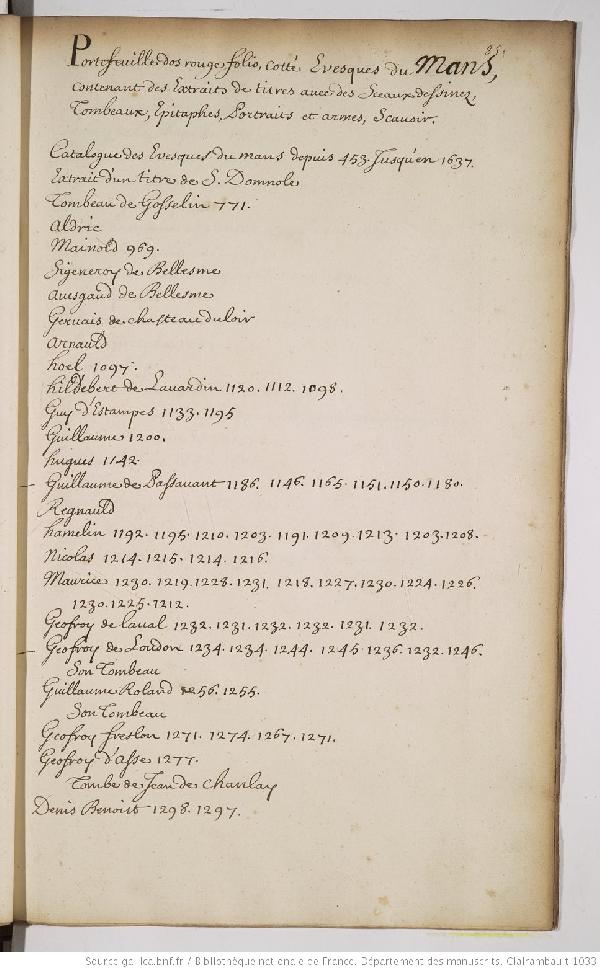 851
Portefeuille dos rouge folio, cotté Evesques du Mans,
contenant des Extraits de titres avec des Sceaux dessinez,
Tombeaux, Epitaphes, Portraits et armes, Scavoir.
Catalogue des Evesques du mans depuis 453. Jusqu'en 1637.
Extrait d'un titre de S. Domnole
Tombeau de Gosselin 771.
Aldric
Mainold 969.
Sigeneroy de Bellesme
Avesgaud de Bellesme
Gervais de chasteau du loir
Arnauld
hoel 1097.
hildebert de Lavardin 1120. 1112. 1098.
Guy d'Estampes 1133. 1195
Guillaume 1200.
hugues 1142.
Guillaume de Passavant 1186. 1146. 1165. 1151. 1150. 1180.
Regnauld
hamelin 1192. 1195. 1210. 1203. 1191. 1209. 1213. 1203. 1208.
Nicolas 1214. 1215. 1214. 1216.
Maurice 1230. 1219. 1228. 1231. 1218. 1227. 1230. 1224. 1226.
1230. 1225. 1212.
Geofroy de laval 1232. 1231. 1232. 1232. 1231. 1232.
Geofroy de Loudon 1234. 1234. 1244. 1245. 1236. 1232. 1246.
Son Tombeau
Guillaume Roland 1256. 1255.
Son Tombeau
Geofroy freslon 1271. 1274. 1267. 1271.
Geofroy d'Asse 1277.
Tombe de Jean de Chanlay
Denis Benoist 1298. 1297.
Source gallica.bnf.fr / Bibliothèque nationale de France. Département des manuscrits. Clairambault 1033